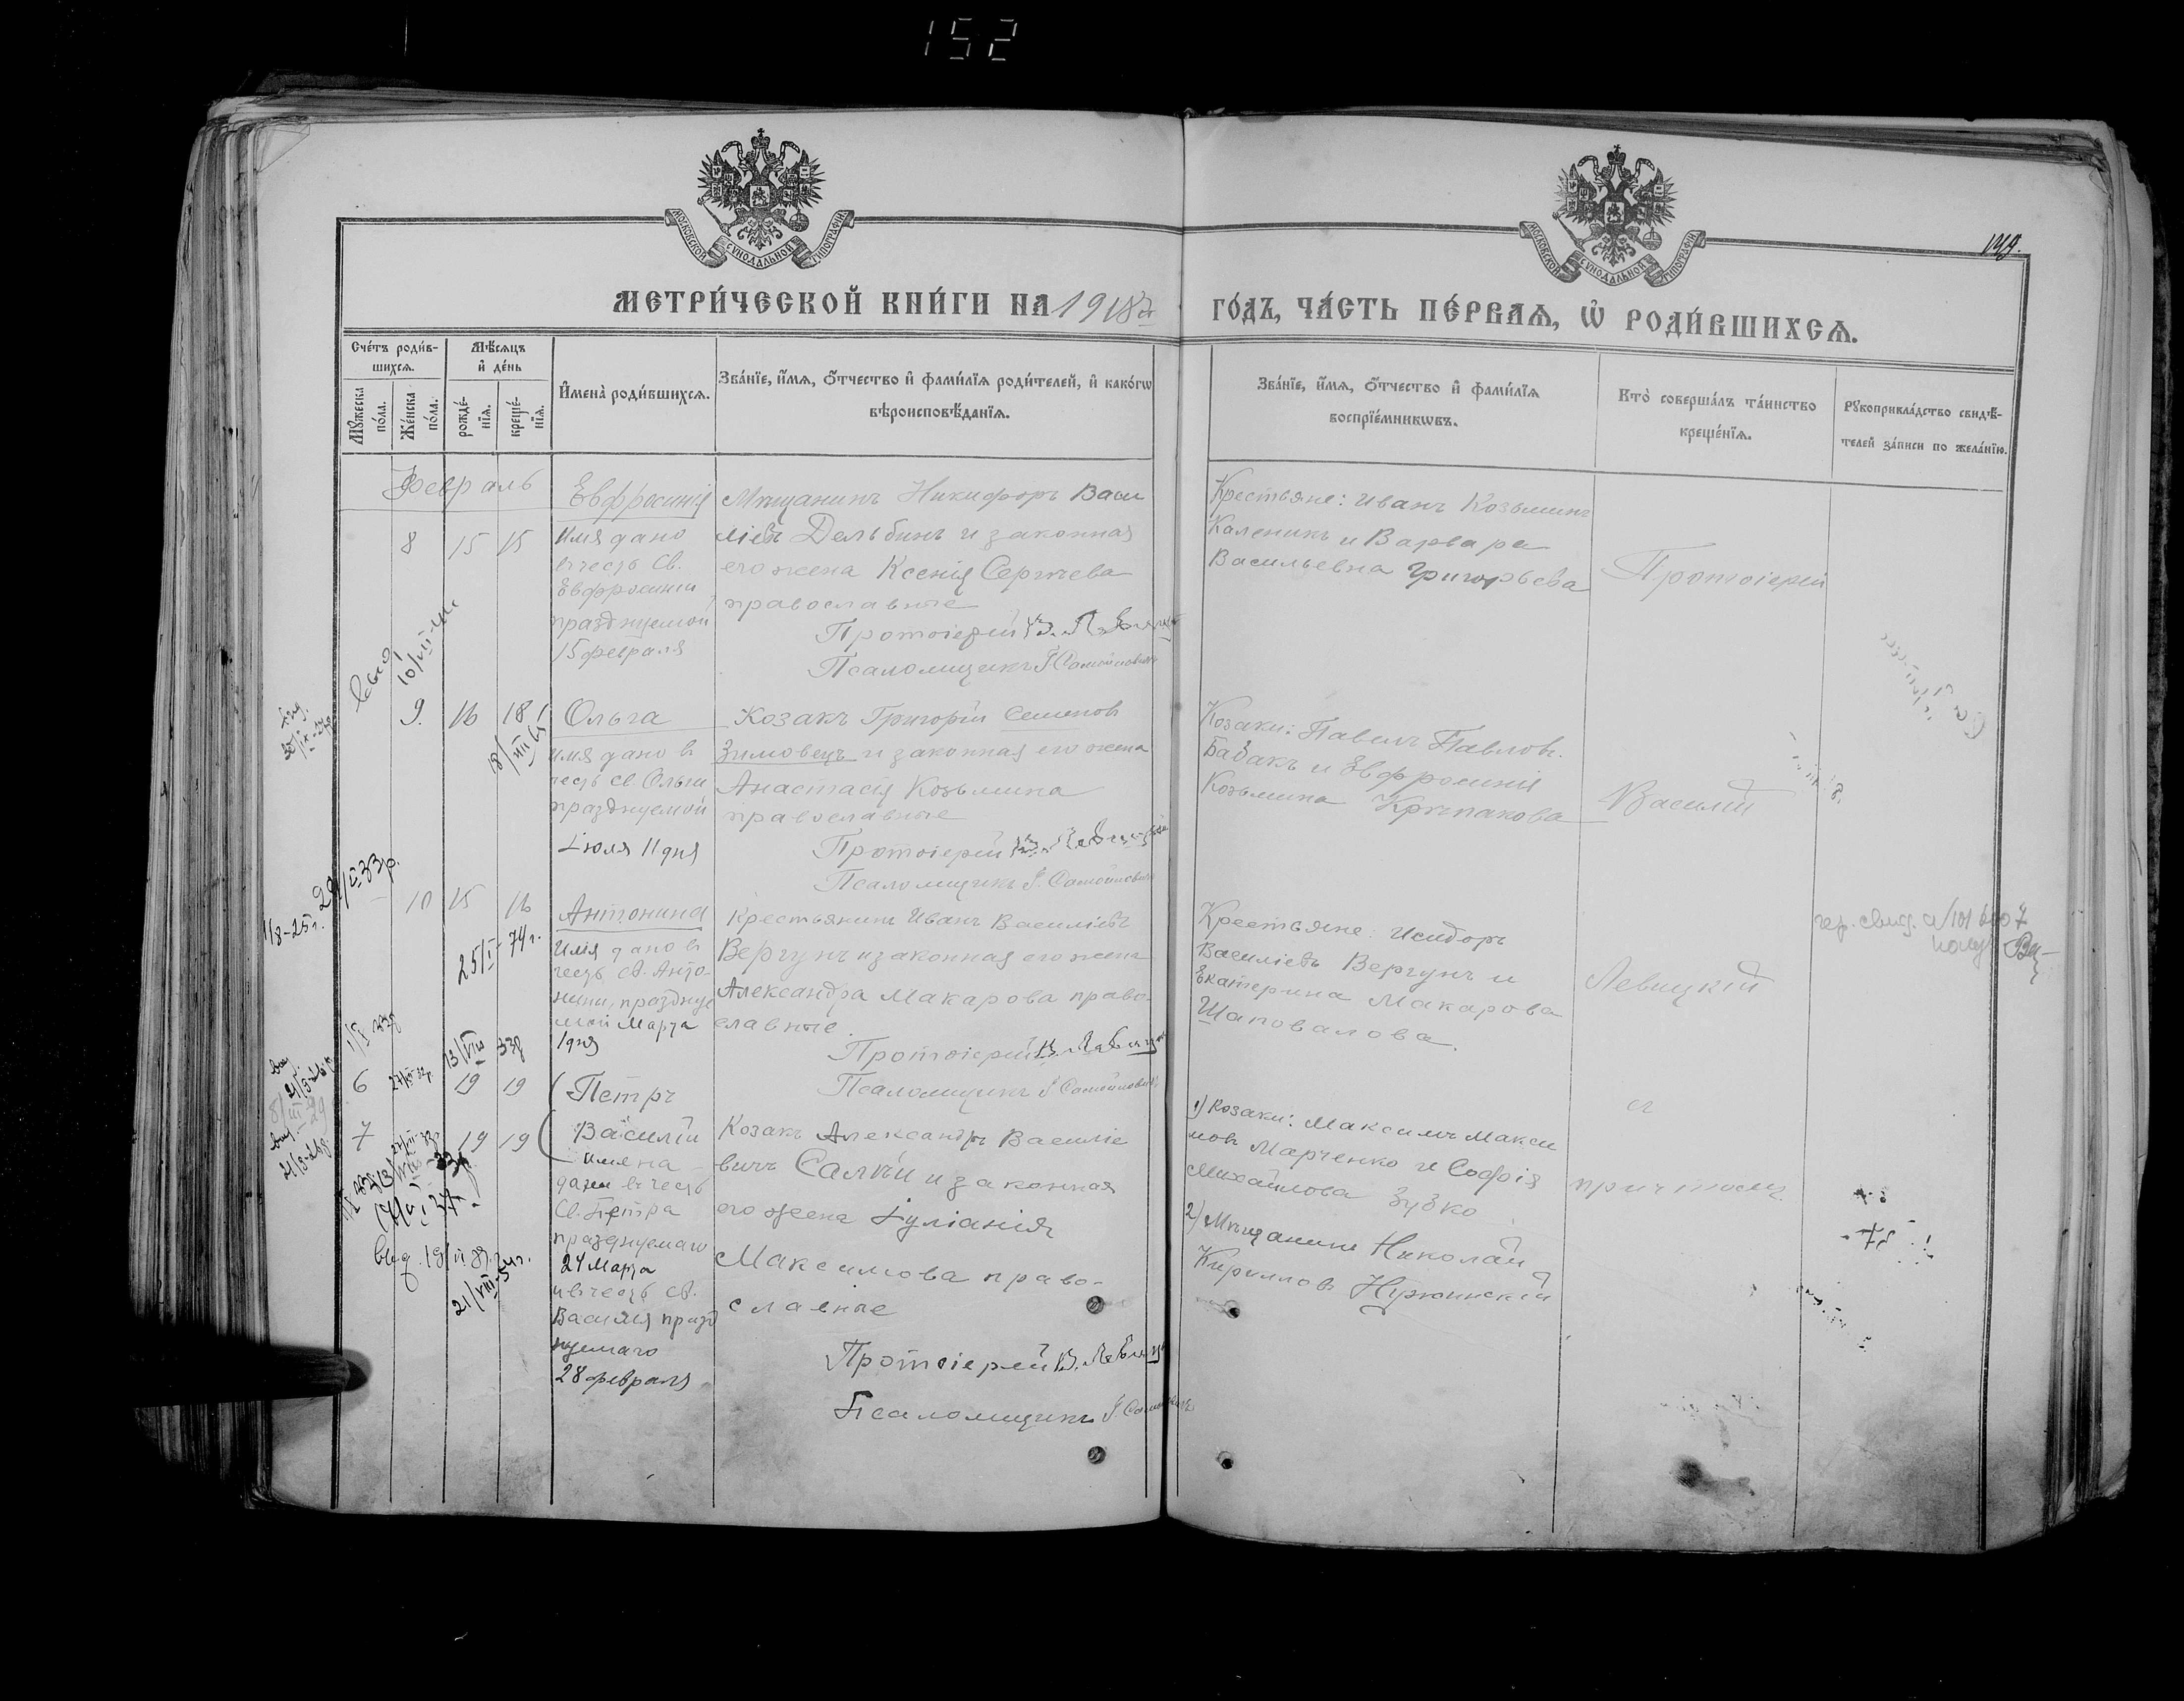 152
МОСКОВСКОЙ СУНОДАЛЬНОЙ ТИПОГРАФІИ
МОСКОВСКОЙ СУНОДАЛЬНОЙ ТИПОГРАФІИ
149.
МЕТРИ́ЧЕСКОЙ КНИ́ГИ НА 1918й ГО́ДЪ, ЧА́СТЬ ПЕ́РВАЯ, Ѿ РОДИ́ВШИХСЯ.
Сче́тъ роди́в-
шихся.
Мѣ́сяцъ
и҆ де́нь
Мꙋ́жеска
по́ла.
Же́нска
по́ла.
рожде́-
нїя.
креще́-
нїя.
И҆мена̀ роди́вшихся.
Зва́нїе, и҆́мя, ѻ҆́тчество и҆ фами́лїя роди́телей, и҆ како́гѡ
вѣроисповѣ́данїя.
Зва́нїе, и҆́мя, ѻ҆́тчество и҆ фами́лїя
воспрїе́мникѡвъ.
Кто̀ соверша́лъ та́инство
креще́нїя.
Рꙋкоприкла́дство свидѣ́-
телей за́писи по жела́нїю.
Февраль
8 15 15
Евфросинія
Имя дано
в честь Св.
Евфросиніи
празднуемой
15 февраля
Мѣщанинъ Никифоръ Васи
ліевъ Дельбинъ и законная
его жена Ксенія Сергѣева
православные
Протоіерей В. Левицкій
Псаломщикъ І Самойловичъ
Крестьяне: Иванъ Козьминъ
Каленикъ и Варвара
Васильевна Григорьева
Протоіерей
9. 16 18
Ольга
имя дано в
честь св. Ольги
празднуемой
Іюля 11 дня
Козакъ Григорій Семенов
Зимовецъ и законная его жена
Анастасія Козьмина
православные
Протоіерей В. Левицкій
Псаломщикъ І. Самойлович
Козаки: Павелъ Павлов.
Бабакъ и Евфросинія
Козьмина Крупакова
Василій
10 15 16
Антонина
Имя дано в
честь св. Анто-
нины, праздну
мой Марта
1 дня
Крестьянинъ Иванъ Василіевъ
Вергунъ и законная его жена
Александра Макарова право-
славные.
Протоіерей В. Левицкій
Псаломщикъ І Самойлович
Крестьяне: Исидоръ
Василіевъ Вергунъ и
Екатерина Макарова
Шаповалова.
Левицкій
25/I-74г.
6 19 19
Петръ
7 19 19
Василій
имена
даны в честь
Св. Петра
празднуемаго
24 Марта
и в честь св.
Василія празд
нуемаго
28 февраля
Козакъ Александръ Василіе
вичъ Салѣй и законная
его жена Іуліанія
Максимова право-
славные
Протоіерей В. Левицкій
Псаломщикъ І. Самойлович
1) Козаки: Максимъ Макси
мовъ Марченко и Софія
Михайлова Зубко
2) Мѣщанинъ Николай
Кириллов
съ
причтомъ